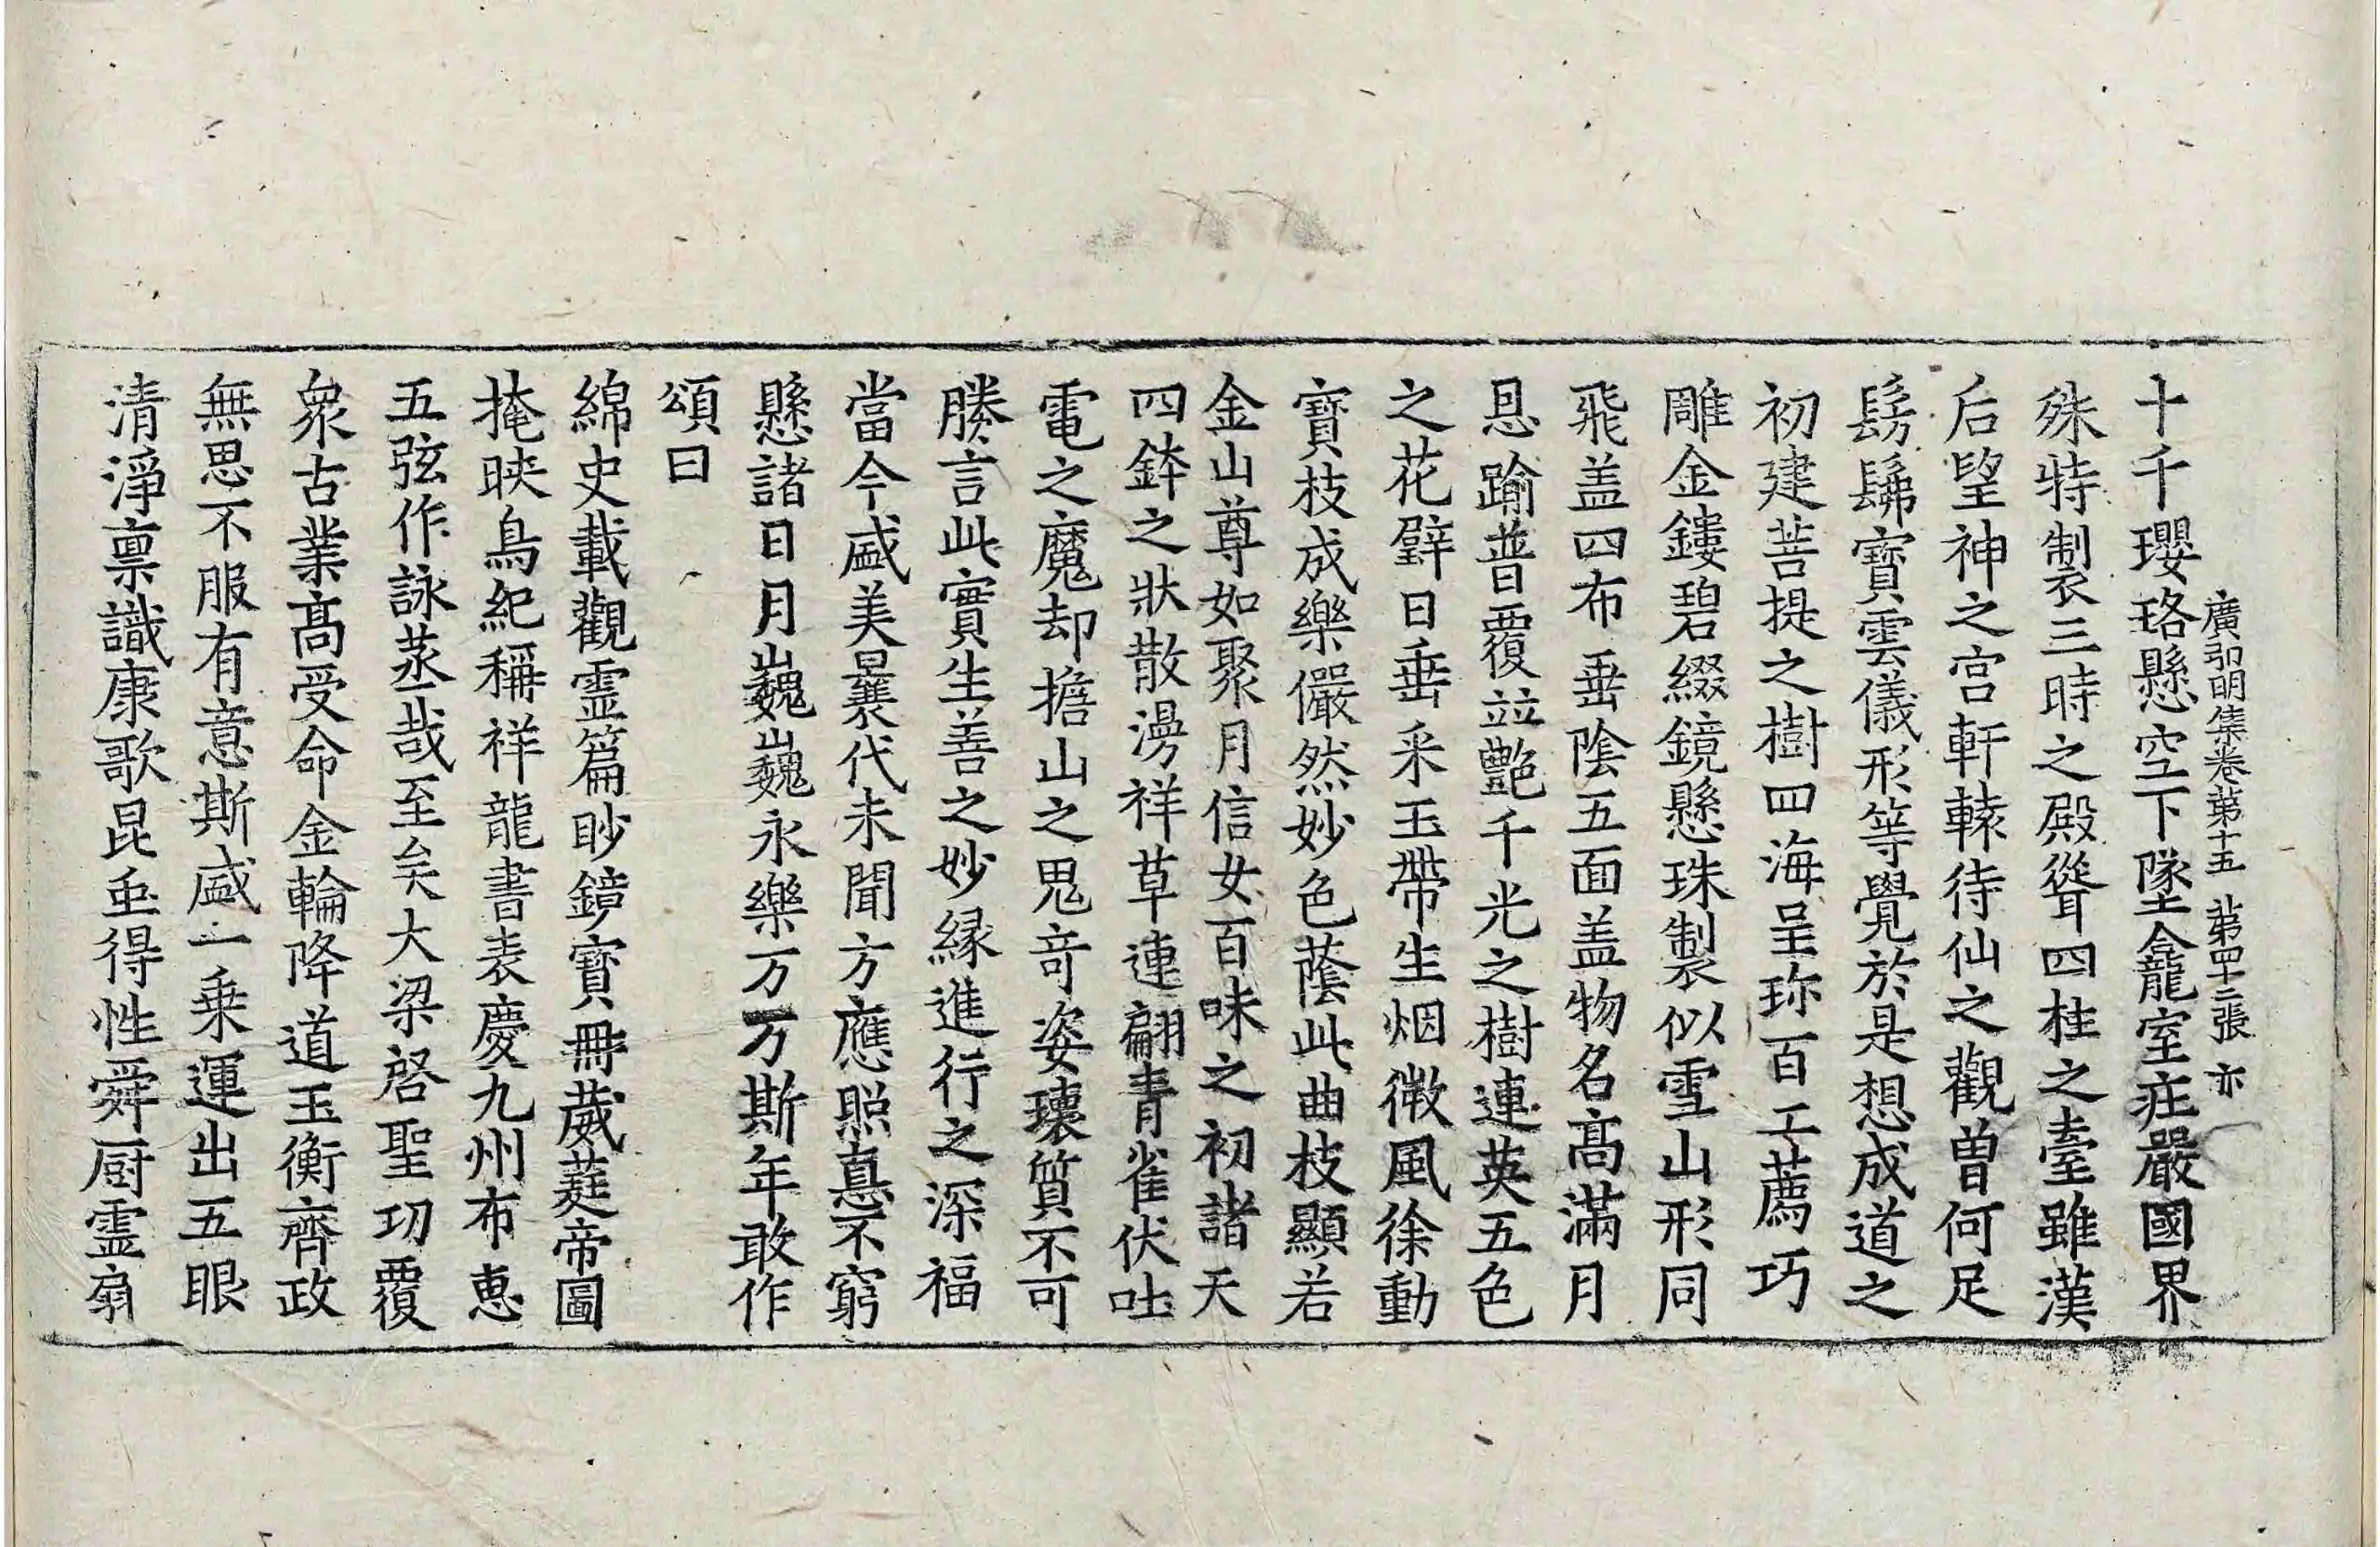 廣弘明集卷第十五 第四十二張 亦
十千瓔珞懸空下墜金龕室㽵嚴國界
殊特製三時之殿聳四柱之臺雖漢
后望神之宮軒轅待仙之觀曾何足
髣髴寶雲儀形等覺於是想成道之
初建菩提之樹四海呈珎百工薦巧
雕金鏤碧綴鏡懸珠製似雪山形同
飛盖四布垂陰五面盖物名高滿月
恩踰普覆竝艷千光之樹連英五色
之花璧日垂釆玉帶生烟微風徐動
寶枝成樂儼然妙色蔭此曲枝顯若
金山尊如聚月信女百味之初諸天
四鉢之狀散漫祥草連翩青雀伏吐
電之魔却擔山之鬼竒姿瓌質不可
勝言此實生善之妙縁進行之深福
當今盛美曩代未聞方應照惪不窮
懸諸日月巍巍永樂万万斯年敢作
頌曰
綿史載觀霊篇眇鏡寶冊葳蕤帝圖
掩映鳥紀稱祥龍書表慶九州布惠
五弦作詠蒸哉至矣大梁啓聖功覆
衆古業髙受命金輪降道玉衡齊政
無思不服有意斯盛一乗運出五眼
清淨禀識康歌昆䖝得性舜厨霊扇